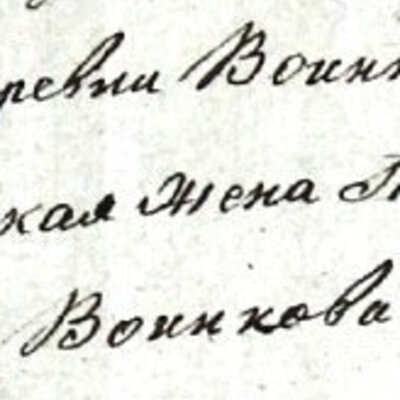 ревни Воин
кая жена
Воинкова